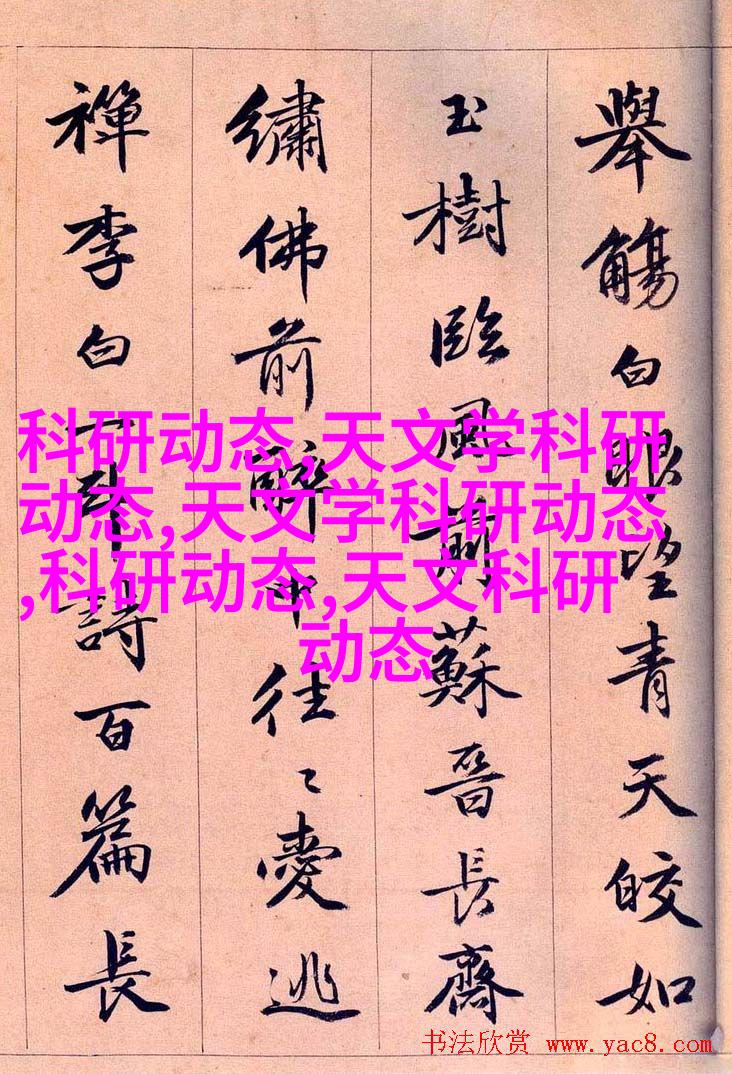 舉觴白眼望青天皎如
玉樹臨風前蘇晉長齋
繡佛前醉中往〻愛逃
禪李白一斗詩百篇長
科研动态,天文学科研
动态,天文学科研动态
,科研动态,天文科研
动态
书法欣赏 www.yac8.com